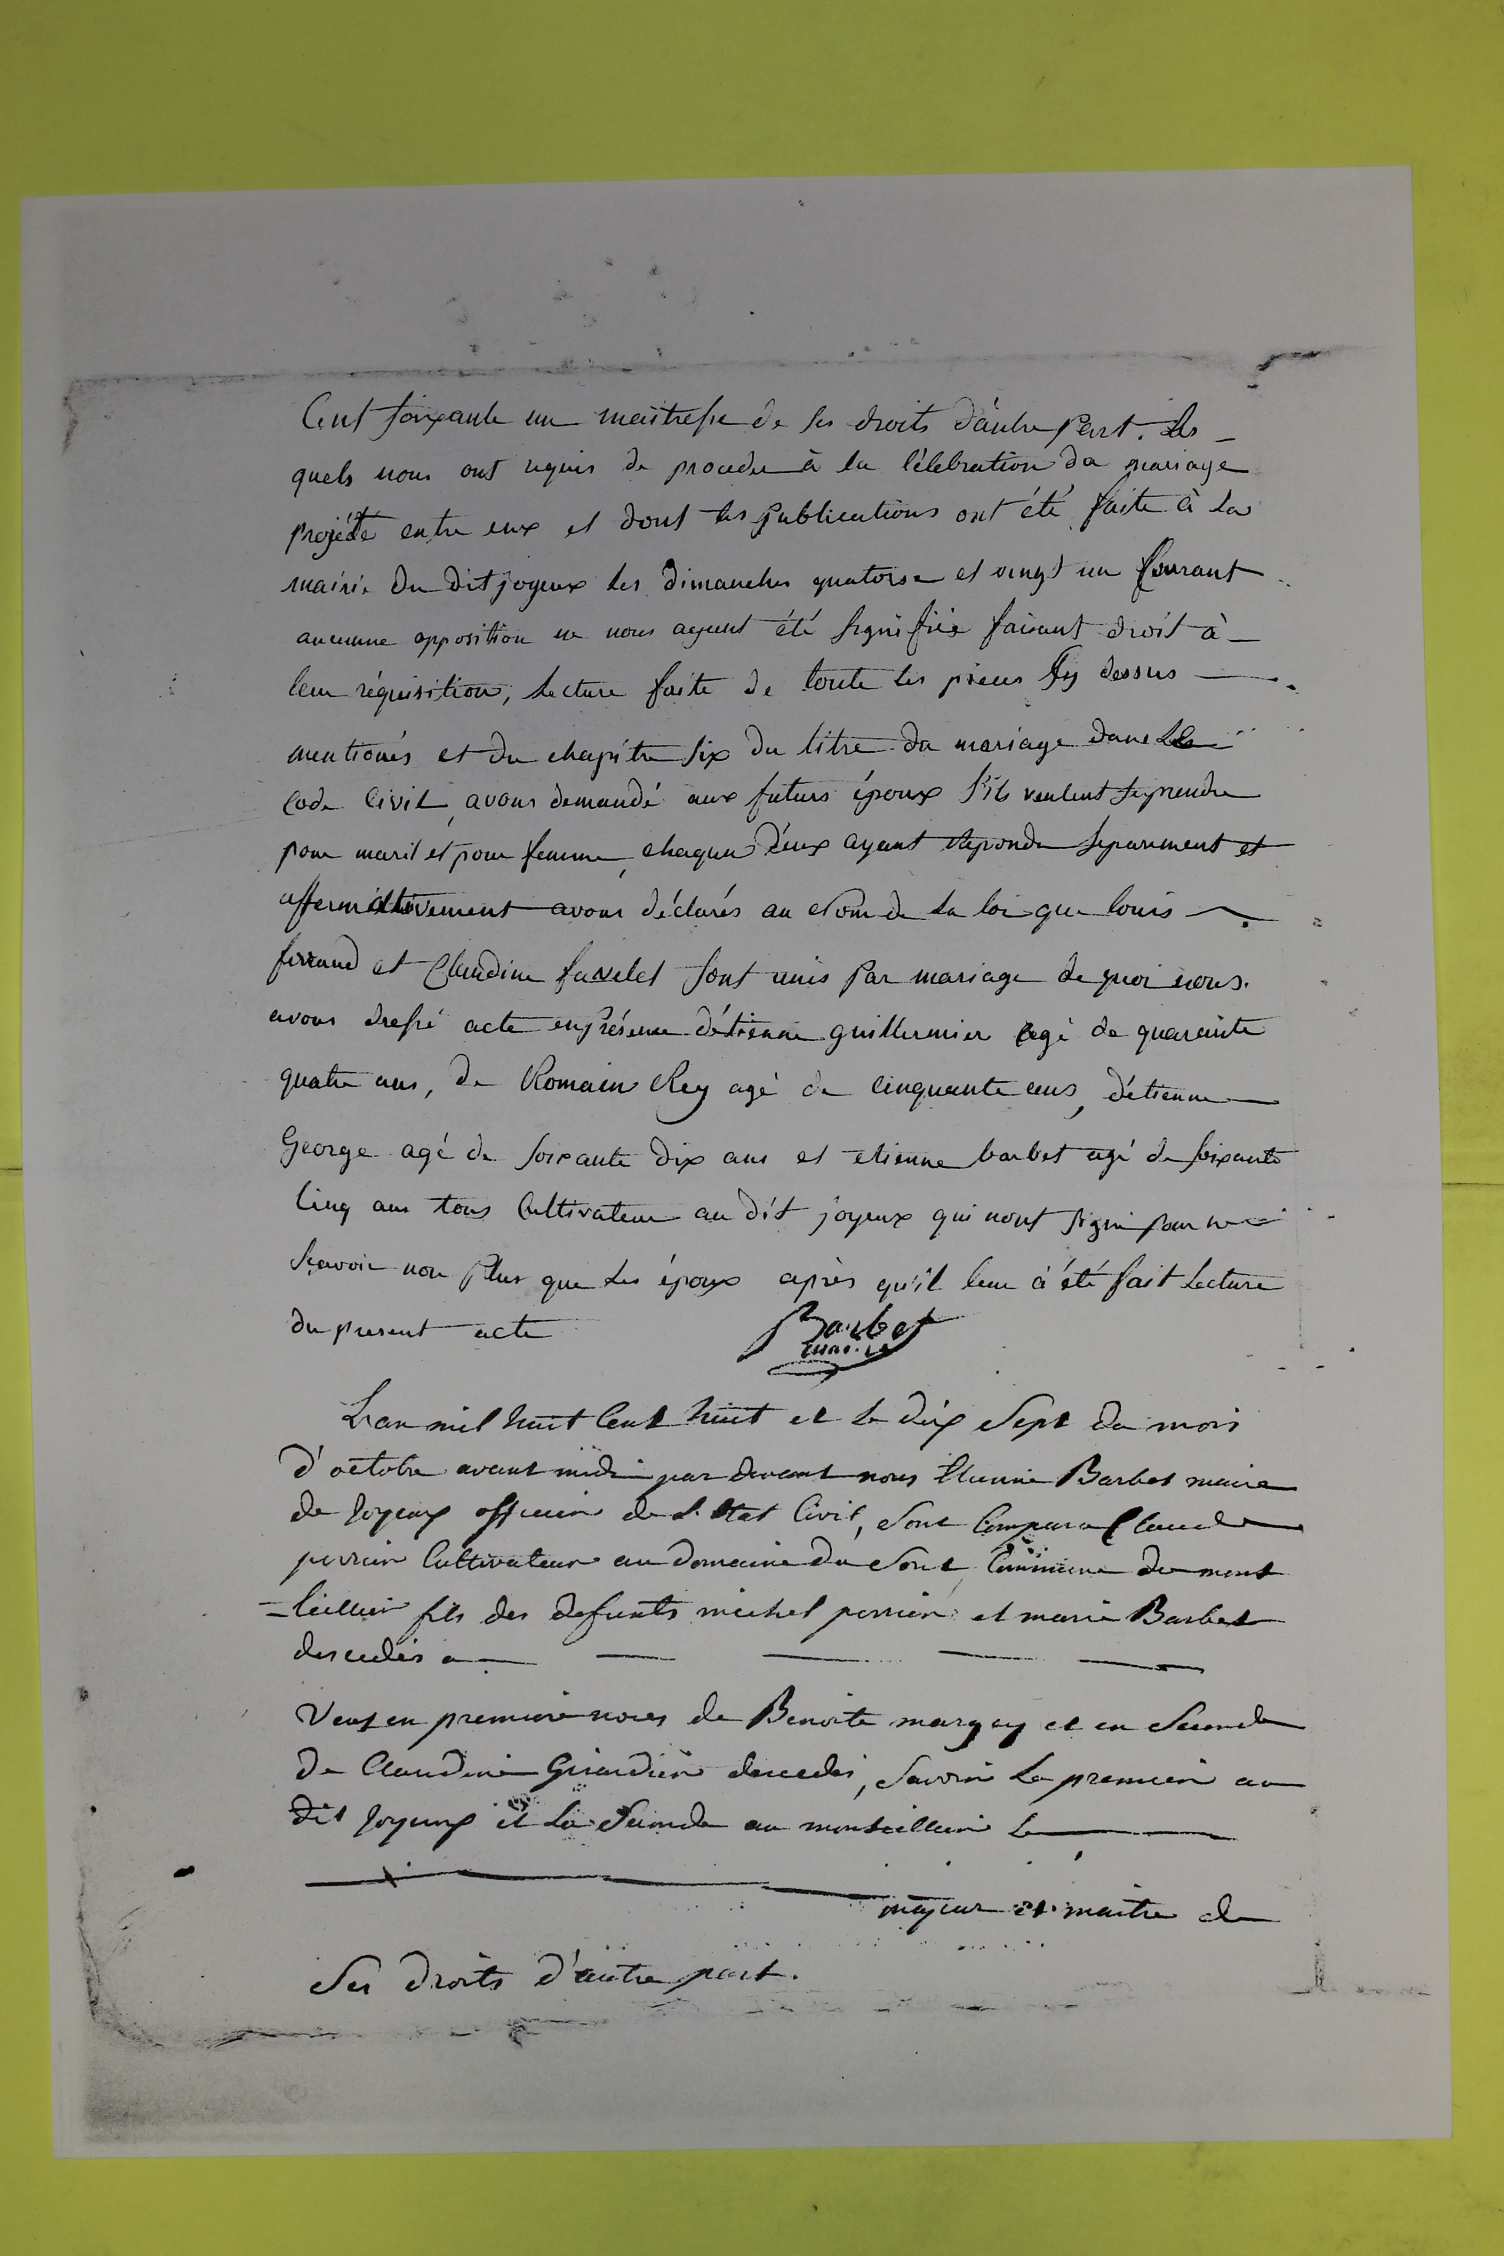 Cent soixante un maitresse de ses droits d'autre Part. Les
quels nous ont requis de proceder à la Célebration du mariage
projétté entre eux et dont les publications ont été faite à la
mairie du dit joyeux les dimanches quatorse et vingt un Courant
aucunne opposition ne nous ayant été signifiée faisant droit à
leur réquisition, Lecture faite de toute les pieces Cy dessus
mentionés et du chapitre six du titre du mariage dans le
Code Civil, avons demandé aux futurs époux s'ils veulent se prendre
pour maril et pour femme, chaqun d'eux ayant Repondu separement et
affermativement avons déclarés au Nom de la loi que louis
ferrand et Claudine favelet sont unis Par mariage de quoi nous
avons dressé acte en Présence d'étienne guillermier agé de quarante
quatre ans, de Romain Rey agé de Cinquante ans, d'étienne
George agé de soixante dix ans et etienne barbet agé de soixante
Cinq ans tous Cultivateur au dit joyeux qui nont signé pour ne
sçavoir non Plus que les époux après qu'il leur à été fait Lecture
du present acte
Barbet
maire
L'an mil huit Cent huit et le dix Sept du mois
d'octobre avant midi par devant nous Etienne Barbet maire
de Joyeux officier de L'Etat Civil, Sont Comparu Claude
perrier Cultivateur au domaine du Commune de mont
-lieller fils des defunts michel perrier et marie Barbet
descedés a
Veuf en premiere noces de Benoite margey et en Seconde
de Claudine Girardier descedés, Savoir La premier au
dit Joyeux et La Seconde au montellier Le
majeur et maitre de
Ses droits d'autre part.